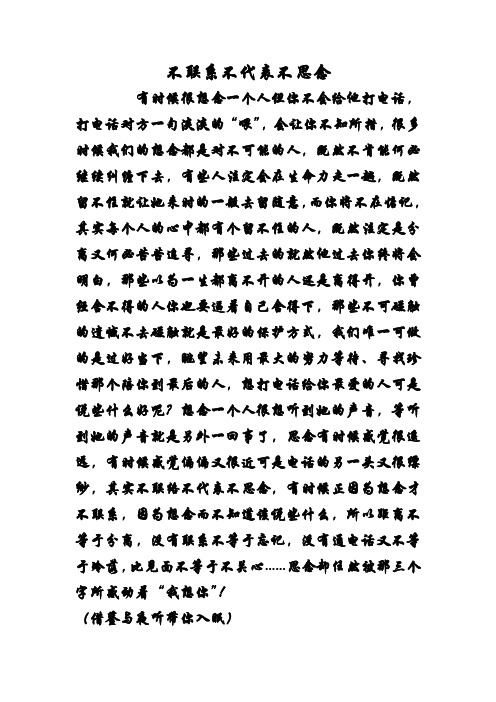 不联系不代表不思念
有时候很想念一个人但你不会给他打电话，
打电话对方一句淡淡的“喂”，会让你不知所措，很多
时候我们的想念都是对不可能的人，既然不肯能何必
继续纠缠下去，有些人注定会在生命力走一趟，既然
留不住就让她来时的一般去留随意，而你将不在惦记，
其实每个人的心中都有个留不住的人，既然注定是分
离又何必苦苦追寻，那些过去的就然他过去你终将会
明白，那些以为一生都离不开的人还是离得开，你曾
经舍不得的人你也要逼着自己舍得下，那些不可碰触
的遗憾不去碰触就是最好的保护方式，我们唯一可做
的是过好当下，眺望未来用最大的努力等待、寻找珍
惜那个陪你到最后的人，想打电话给你最爱的人可是
说些什么好呢？想念一个人很想听到她的声音，等听
到她的声音就是另外一回事了，思念有时候感觉很遥
远，有时候感觉偏偏又很近可是电话的另一头又很缥
缈，其实不联络不代表不思念，有时候正因为想念才
不联系，因为想念而不知道该说些什么，所以距离不
等于分离，没有联系不等于忘记，没有通电话又不等
于冷落，比见面不等于不关心……思念却任然被那三个
字所感动着“我想你”！
（借鉴与夜听带你入眠）